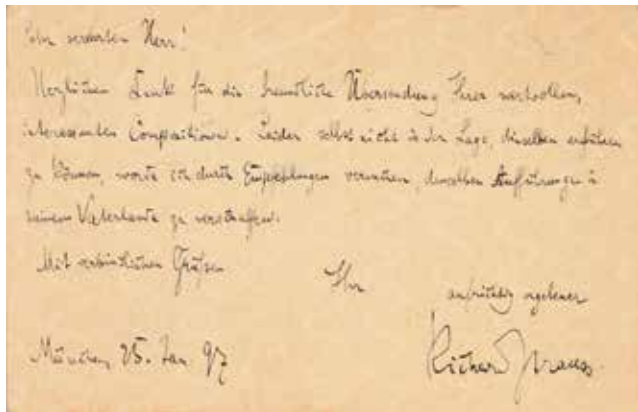 Sehr verehrter Herr!
Herzlichen Dank für die freundliche Übersendung Ihrer wertvollen,
interessanten Compositionen. Leider selbst nicht in der Lage, dieselben aufführen
zu können, werde ich durch Empfehlungen versuchen, denselben Aufführungen in
meinem Vaterlande zu verschaffen.
Mit verbindlichen Grüßen
Ihr
aufrichtig ergebener
München, 25. Jan 97
Richard Strauss.